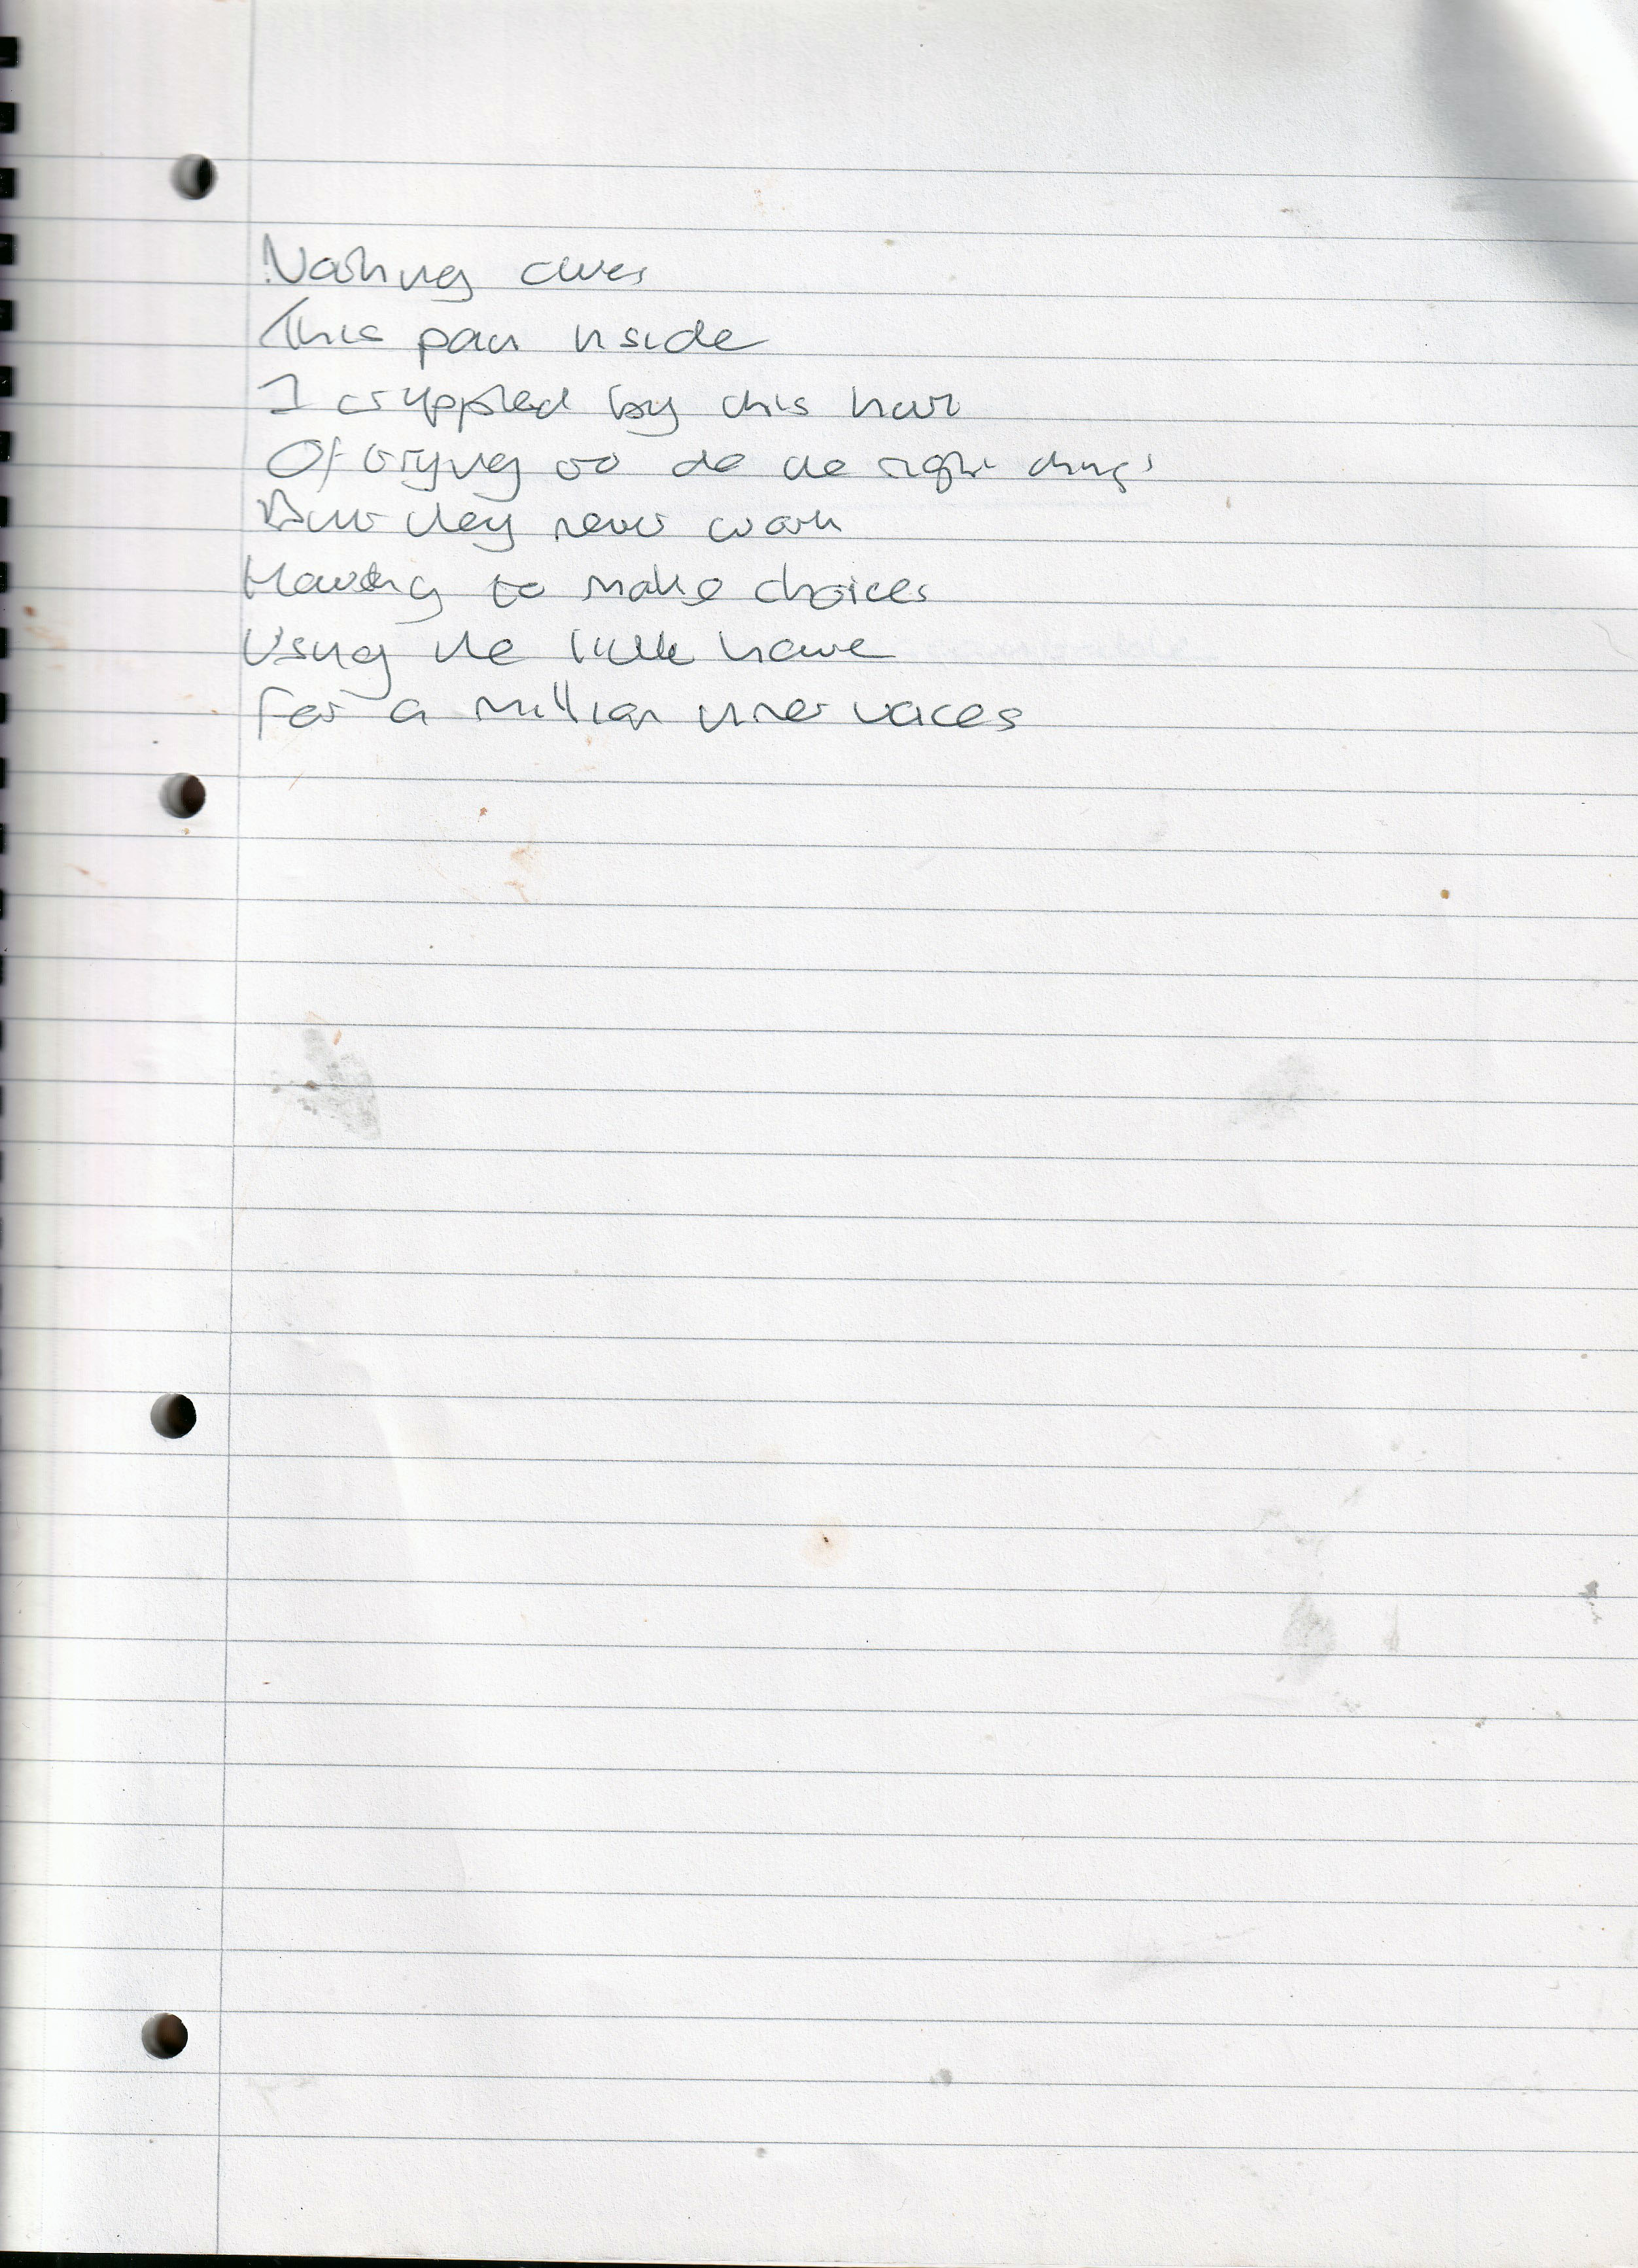 Nothing cures
This pain inside
I crippled by this hurt
Of trying to do the right things
But they never work
Having to make choices
Using the little have
For a million inner voices